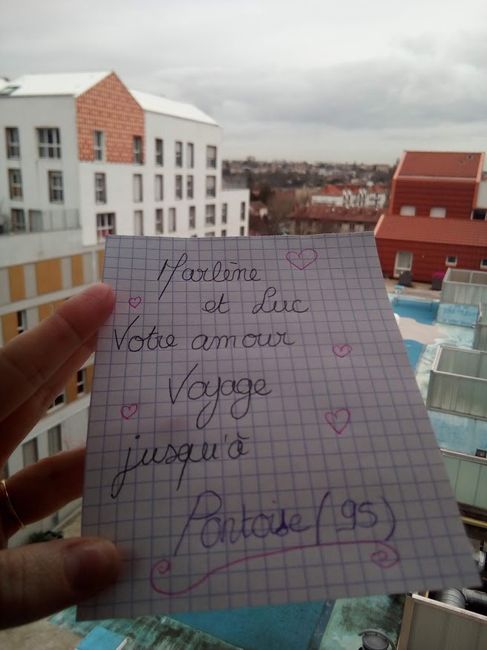 Marlène
et Luc
Votre amour
Voyage
jusqu'à
Pontoise (95)